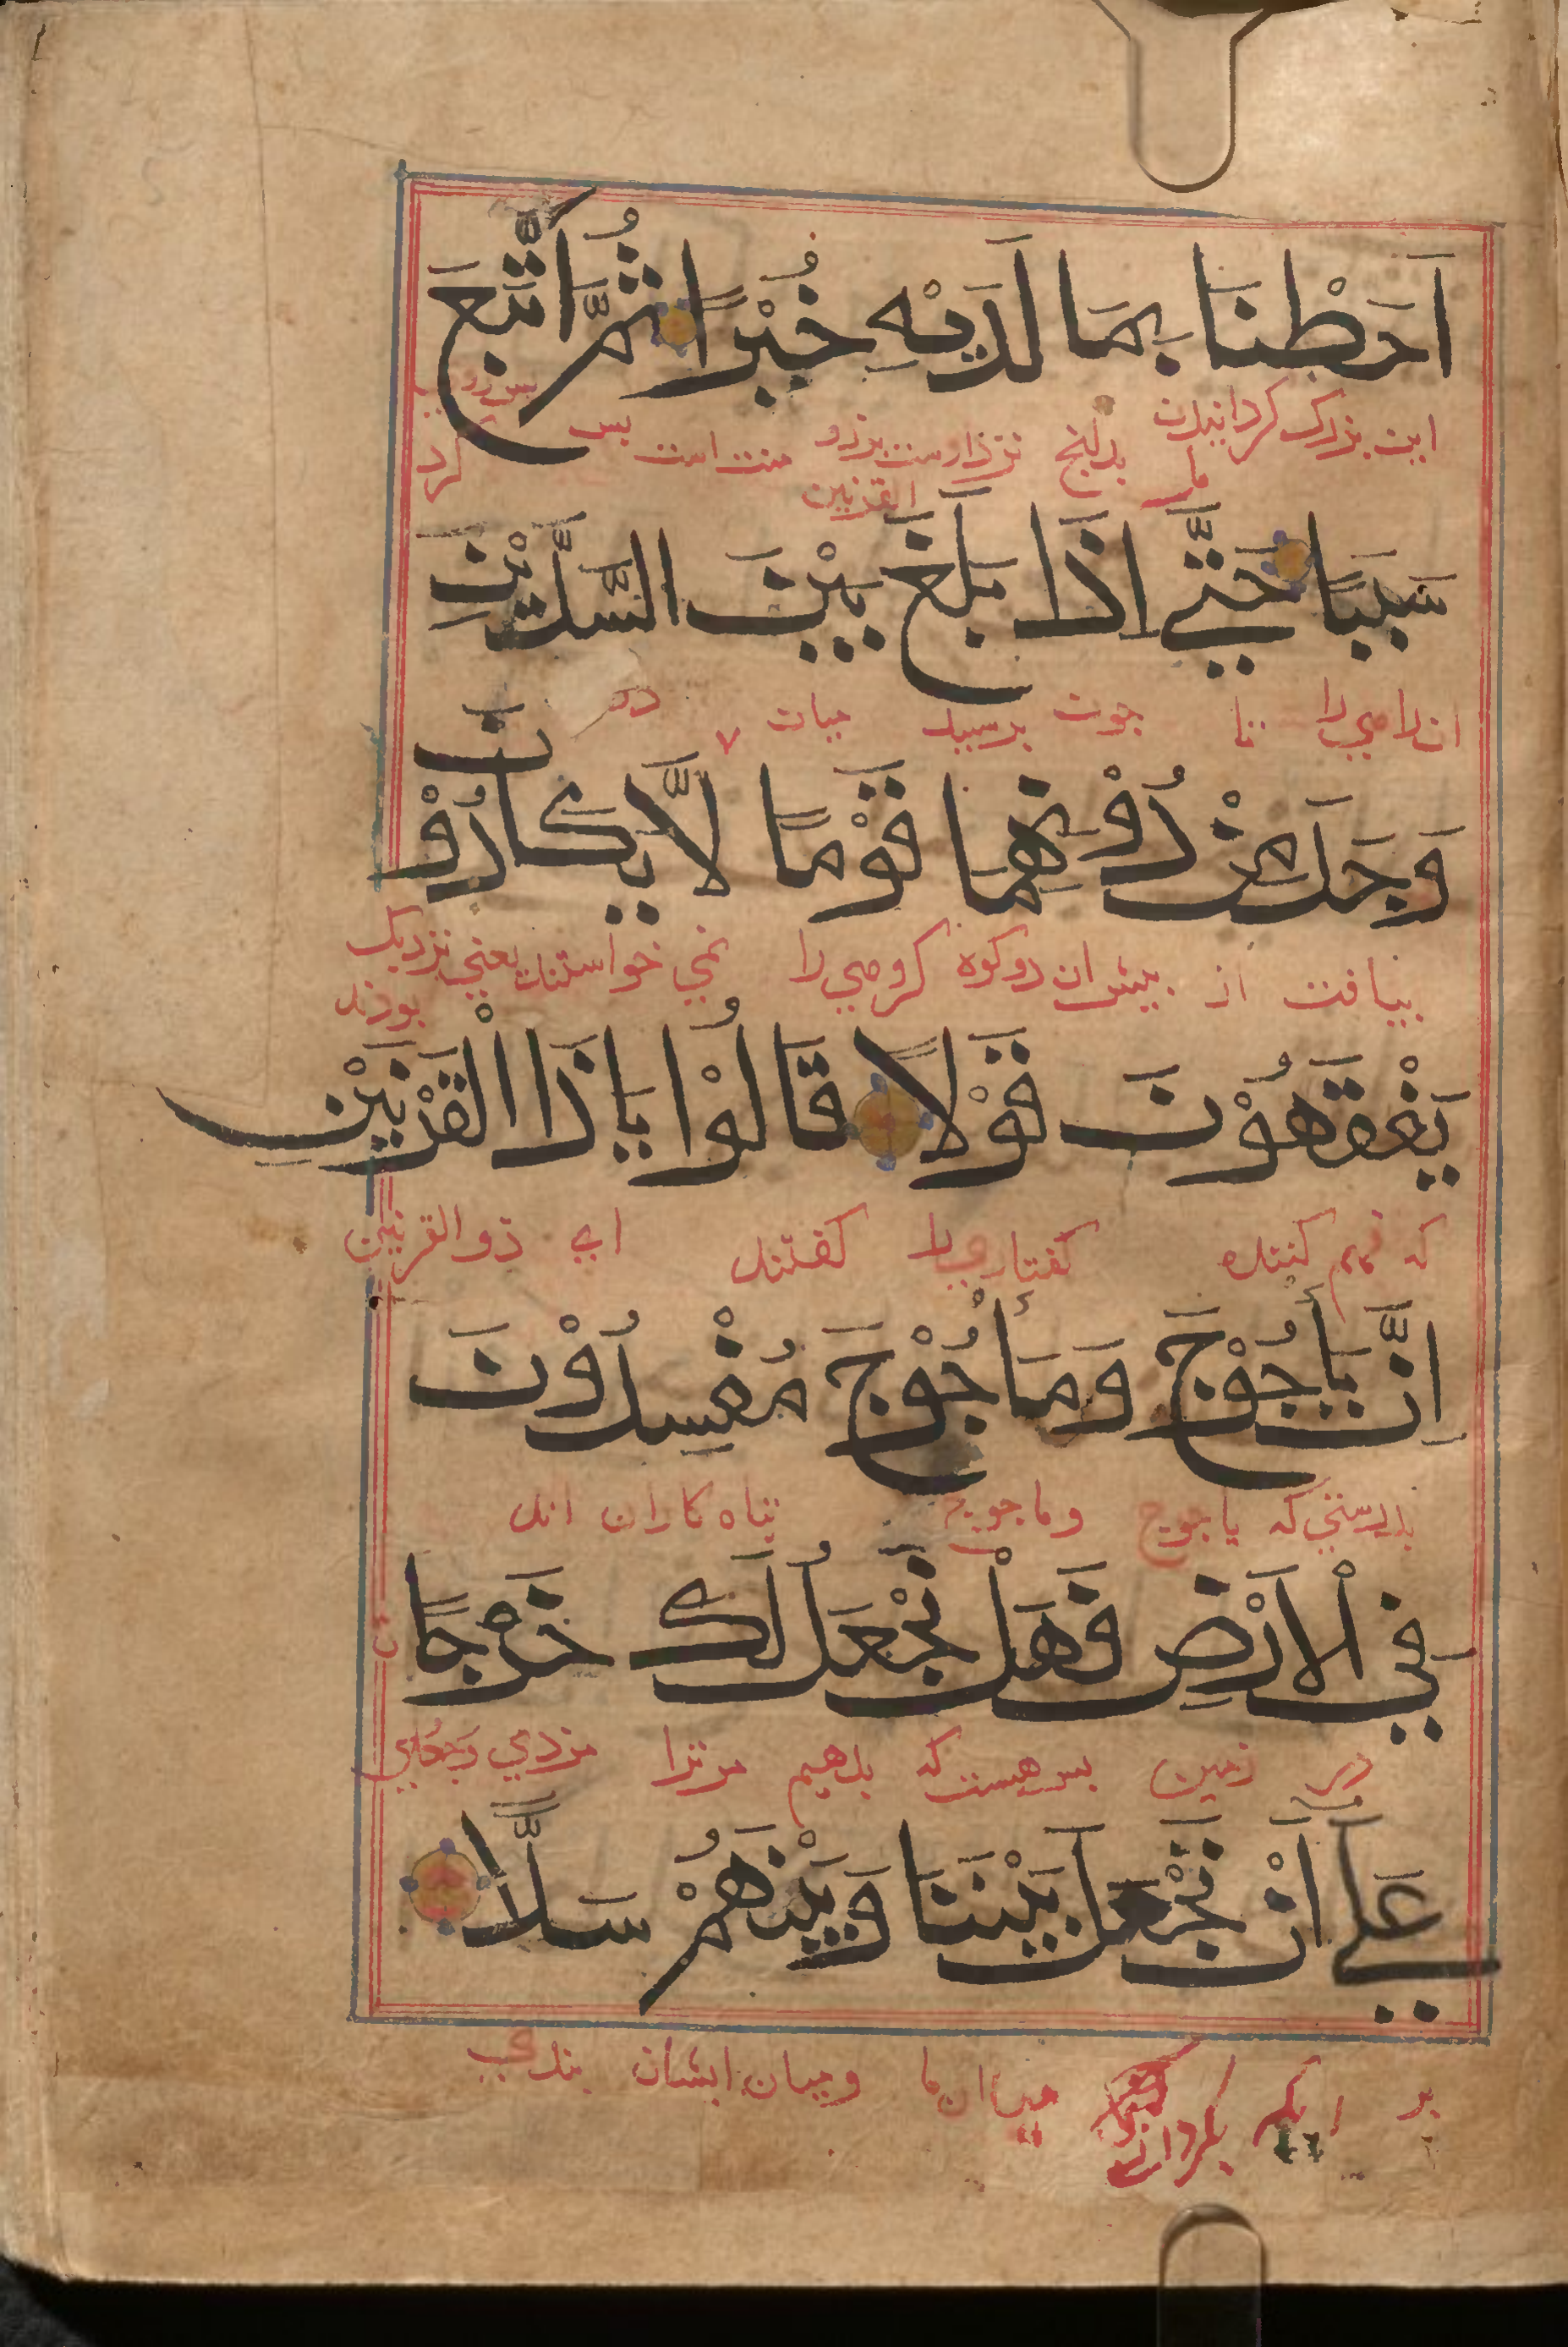 اَحَطْنَا بِمَا لَدَيْهِ خُبْرًا ثُمَّ اَتْبَعَ
این بزرک کردانیدن نزد اوست منت است بس
کرد
القرنین
سَبَبًا حَتّٰي اِذَا بَلَغَ بَيْنَ السَّدَّيْنِ
تا چون برسید میان دو
وَجَدَ مِنْ دُوْنِهِمَا قَوْمًا لَّا يَكَادُوْنَ
بیافت از پیش ان دو کوه کروهی را نمی خواستند یعنی نزدیک
بودند
يَفْقَهُوْنَ قَوْلًا قَالُوْا يَاذَا الْقَرْنَيْنِ
که فهم کنند کفتاری را کفتند ای ذوالقرنین
اِنَّ يَأْجُوْجَ وَمَأْجُوْجَ مُفْسِدُوْنَ
بدرستی که یاجوج وماجوج تباه کاران اند
فِي الْاَرْضِ فَهَلْ نَجْعَلُ لَكَ خَرْجًا
در زمین بس هست که بدهیم مر ترا مزدی وجعلی
عَلٰي اَنْ تَجْعَلَ بَيْنَنَا وَبَيْنَهُمْ سَدًّا
بر میان ما ومیان ایشان بندی